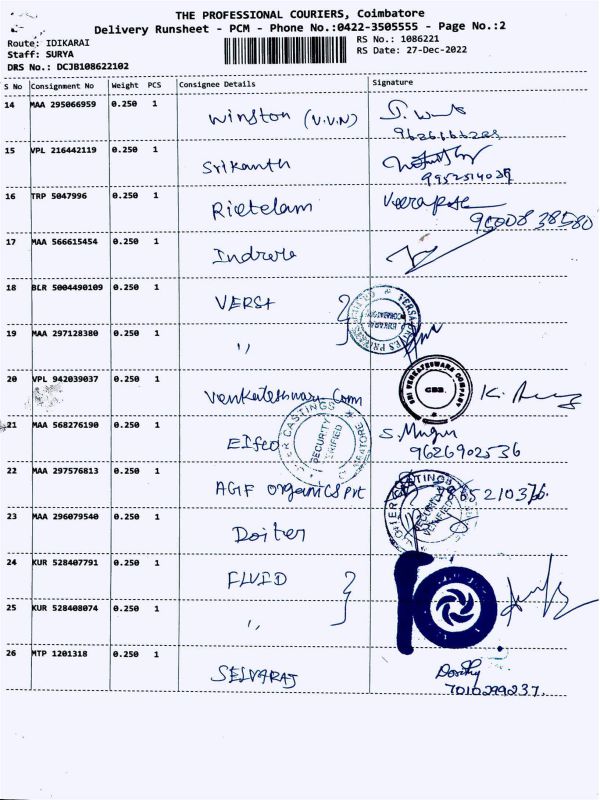 THE PROFESSIONAL COURIERS, Coimbatore
Delivery Runsheet - PCM - Phone No.:0422-3505555 - Page No.:2
Route: IDIKARAI
RS No.: 1086221
Staff: SURYA
RS Date: 27-Dec-2022
DRS No.: DCJB108622102
S No Consignment No Weight PCS Consignee Details Signature
14 MAA 295066959 0.250 1 Winston (V.V.N)
15 VPL 216442119 0.250 1 Srikanth
9952514039
16 TRP 5047996 0.250 1
95008 38580
17 MAA 566615454 0.250 1
18 BLR 5004490109 0.250 1 VERSA
19 MAA 297128380 0.250 1 "
20 VPL 942039037 0.250 1 Venkateshwara Com
SRI VENKATESHWARA COMPANY
CBE.
21 MAA 568276190 0.250 1 S. Mugu
9626902536
CASTINGS
SECURITY
VERIFIED
22 MAA 297576813 0.250 1 AGIF organics Pvt
CASTINGS
SECURITY
VERIFIED
23 MAA 296079540 0.250 1
24 KUR 528407791 0.250 1 FLUID
25 KUR 528408074 0.250 1 "
26 MTP 1201318 0.250 1 SELVARAJ
7010299237.